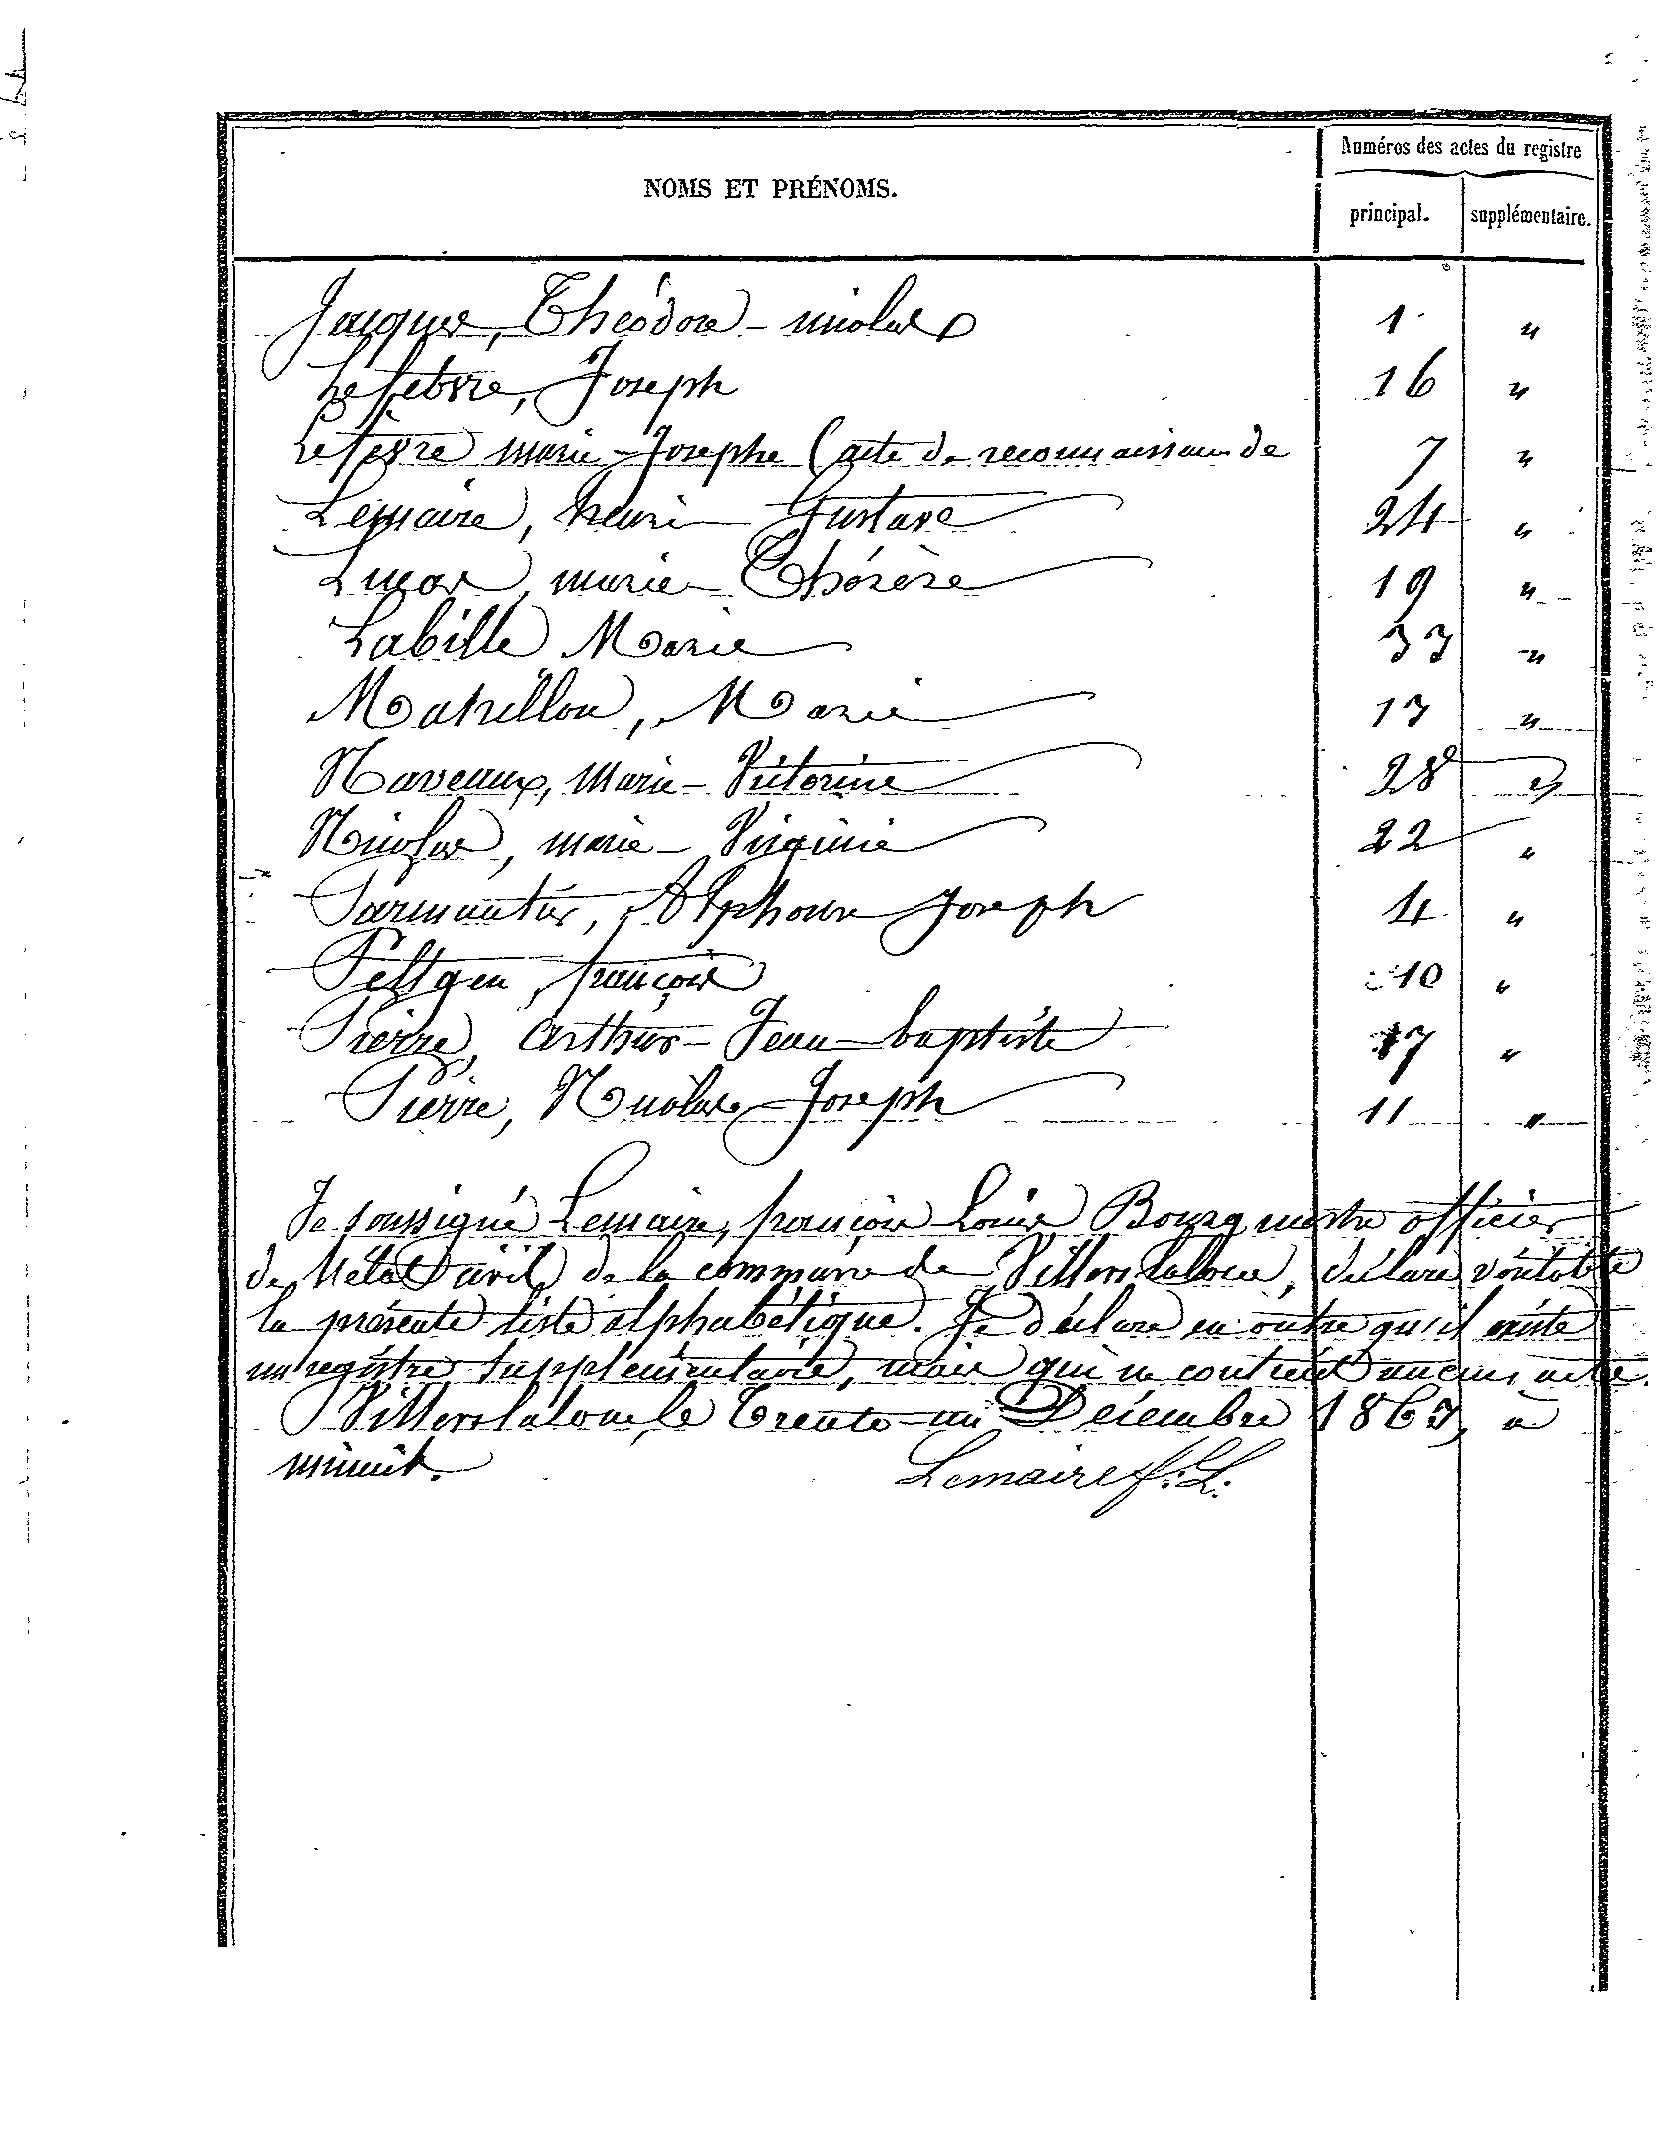 Numéros des actes du registre
NOMS ET PRÉNOMS.
principal. supplémentaire.
Jacques, Théodore - nicolas 1 "
Lefebvre, Joseph 16 "
Lefevre marie - Josephe (acte de reconnaissance de 7 "
Lemaire, henri Gustave 24 "
Lucas marie Thérèse 19 "
Labille Marie 33 "
Matrillon, Marie 13 "
Naveaux, Marie - Victorine 28 "
Nicolas, marie - Virginie 22 "
Parmentier, Alphonse Joseph 4 "
Peltgen, françois 10 "
Pierre, Arthur - Jean - baptiste 17 "
Pierre, Nicolas - Joseph 11 "
Je soussigné Lemaire, françois Louis Bourgmestre officier
de l'état civil de la commune de Villers laloue, déclare véritable
la présente liste alphabétique. Je déclare en outre qu'il existe
un registre supplémentaire, mais qui ne contient aucun acte.
Villers laloue, le Trente - un Décembre 1863, à
minuit. Lemaire f. L.